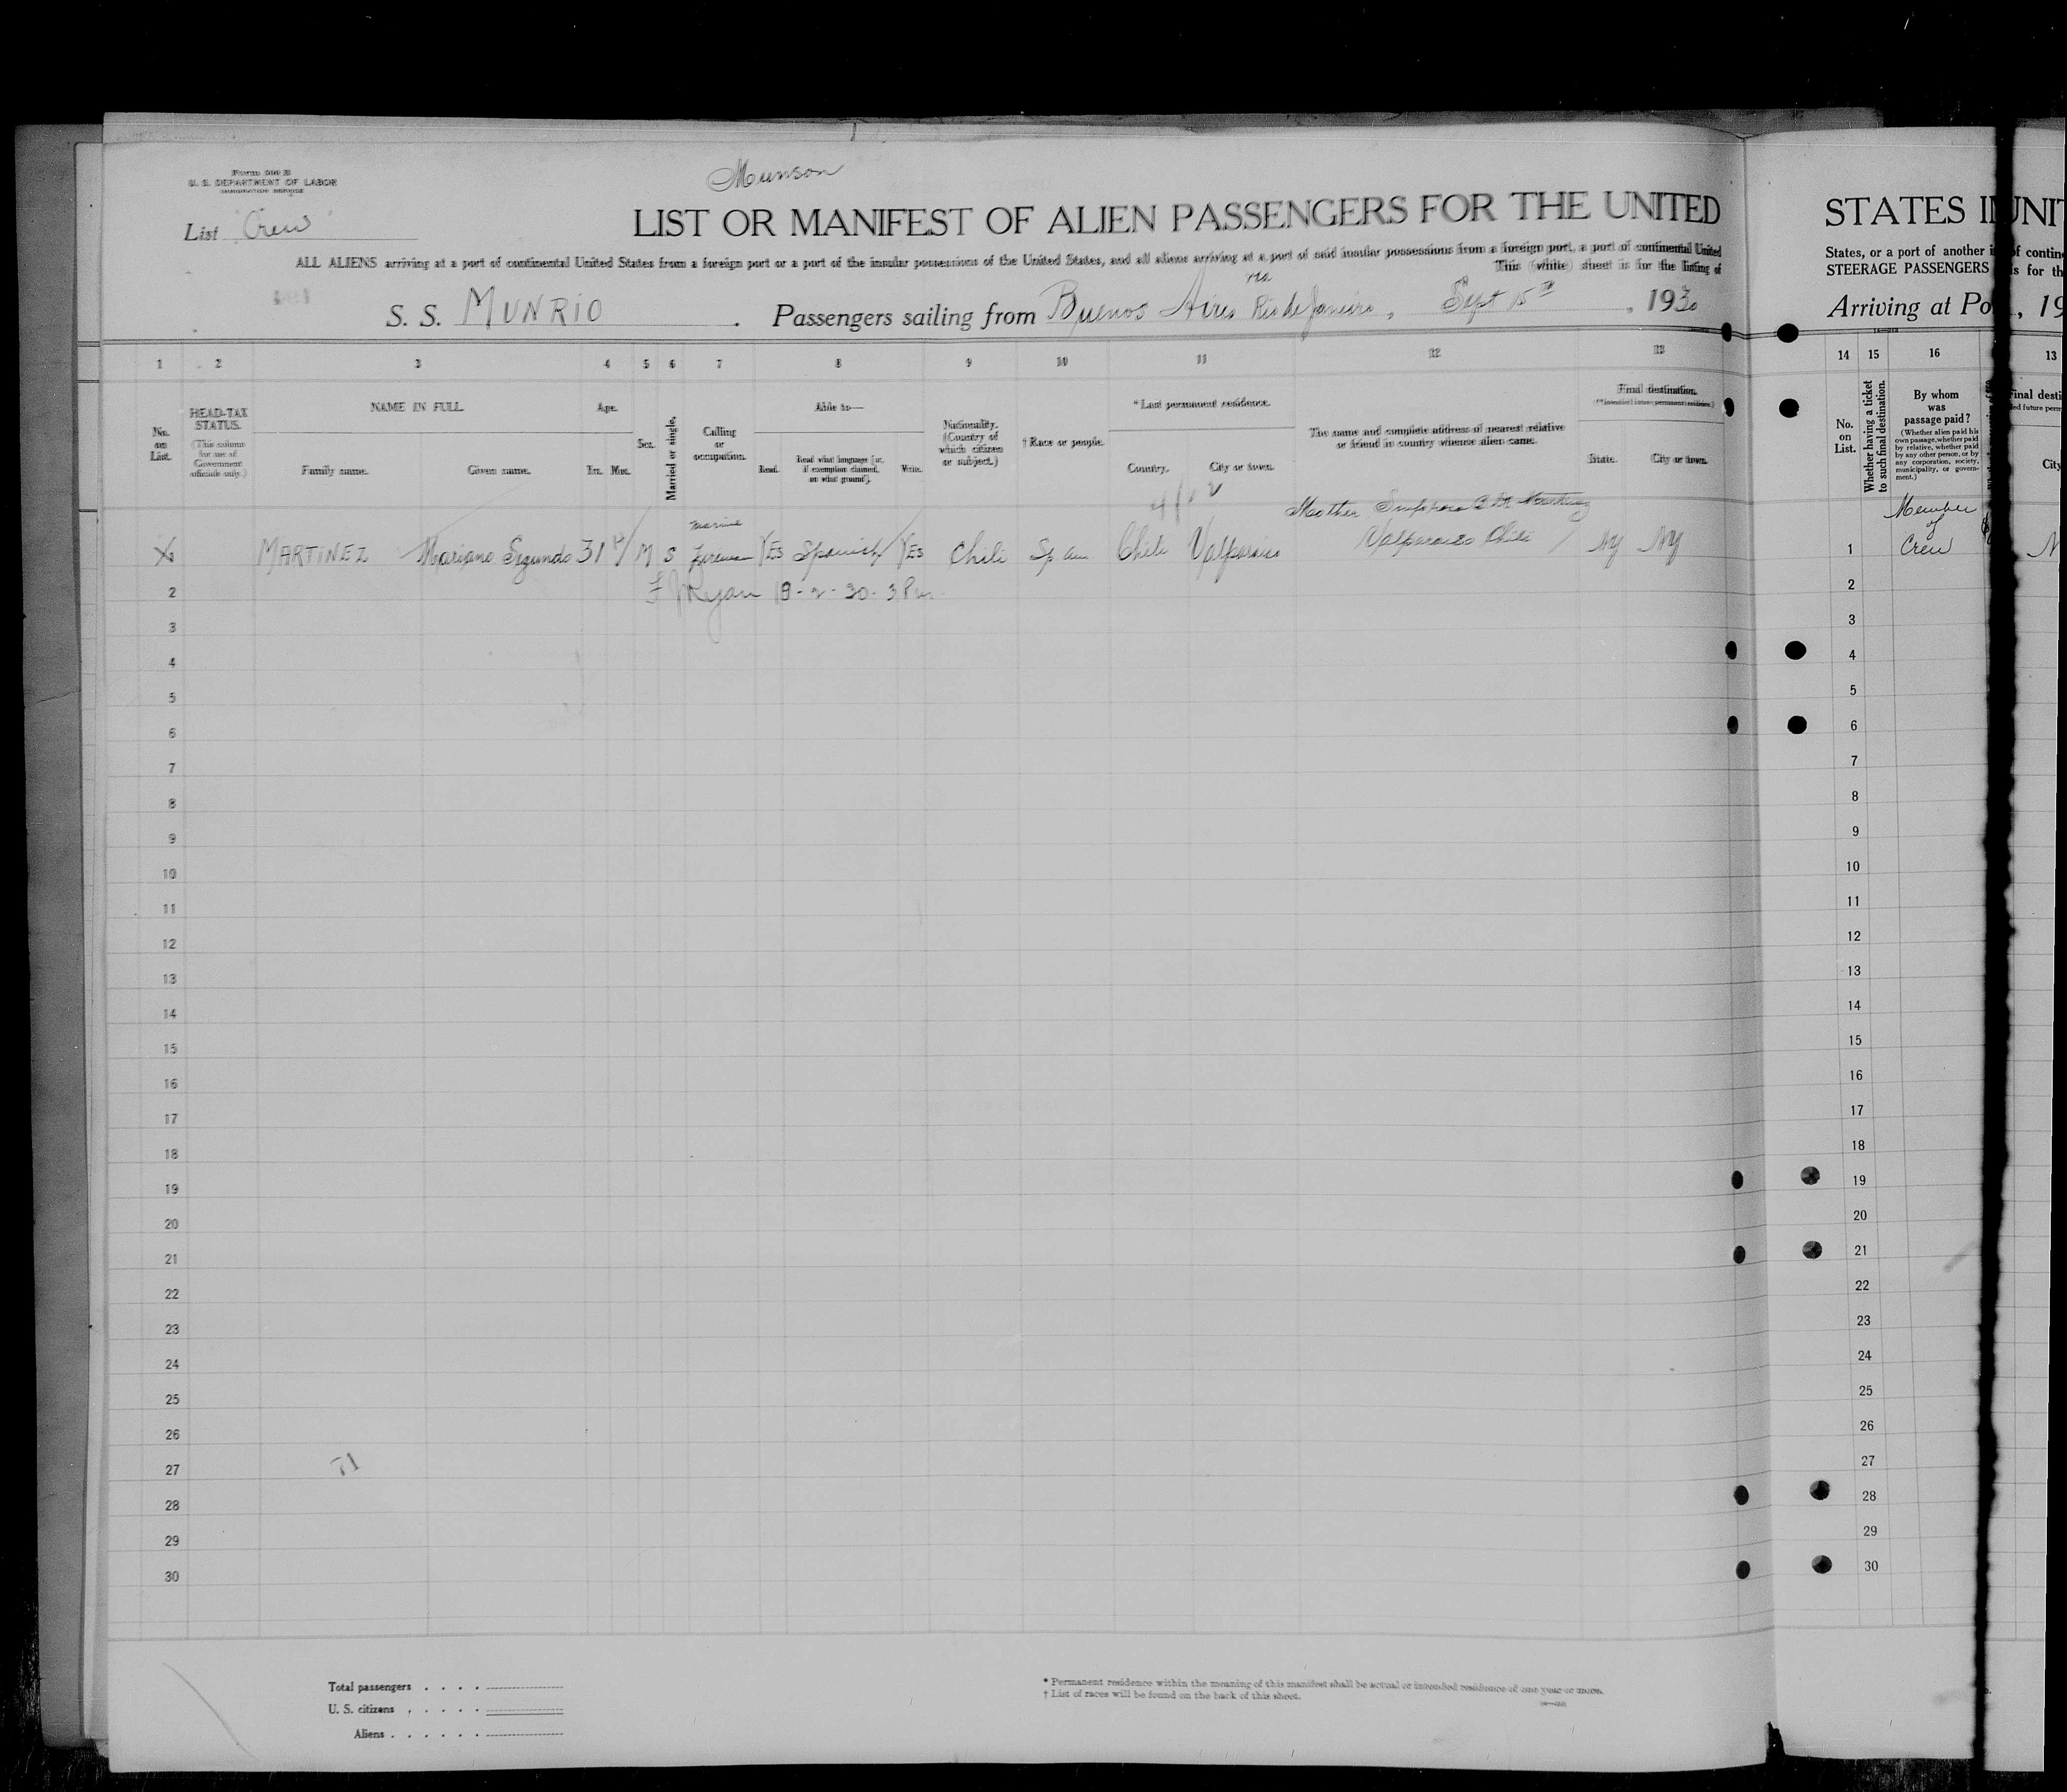 Form 500 B
U. S. DEPARTMENT OF LABOR
IMMIGRATION SERVICE
Munson
List Crew
LIST OR MANIFEST OF ALIEN PASSENGERS FOR THE UNITED
ALL ALIENS arriving at a port of continental United States from a foreign port or a port of the insular possessions of the United States, and all aliens arriving at a port of said insular possessions from a foreign port, a port of continental United
This (white) sheet is for the listing of
S. S. MUNRIO . Passengers sailing from Buenos Aires via Rio de Janeiro, Sept 15TH , 1930
1 2 3 4 5 6 7 8 9 10 11 12 13
No. on List.
HEAD-TAX STATUS.
(This column for use of Government officials only.)
NAME IN FULL
Family name. Given name.
Age.
Yrs. Mos.
Sex.
Married or single.
Calling or occupation.
Able to—
Read. Read what language [or, if exemption claimed, on what ground]. Write.
Nationality. (Country of which citizen or subject.)
† Race or people.
* Last permanent residence.
Country. City or town.
The name and complete address of nearest relative or friend in country whence alien came.
Final destination.
(*Intended future permanent residence.)
State. City or town.
Mother
marine
MARTINEZ Mariano Segundo 31 M S Fireman YES Spanish YES Chili Sp am Chili Valparaiso Valparaiso Chili NY NY
F J Ryan
2
3
4
5
6
7
8
9
10
11
12
13
14
15
16
17
18
19
20
21
22
23
24
25
26
27
28
29
30
Total passengers
U. S. citizens
Aliens
* Permanent residence within the meaning of this manifest shall be actual or intended residence of one year or more.
† List of races will be found on the back of this sheet.
STATES I
States, or a port of another
STEERAGE PASSENGERS
Arriving at Po
14 15 16
No. on List.
Whether having a ticket to such final destination.
By whom was passage paid?
(Whether alien paid his own passage, whether paid by relative, whether paid by any other person, or by any corporation, society, municipality, or government.)
1 Member of Crew
2
3
4
5
6
7
8
9
10
11
12
13
14
15
16
17
18
19
20
21
22
23
24
25
26
27
28
29
30
UNIT
of contin
is for th
, 19
13
Final desti
ded future perm
City
N